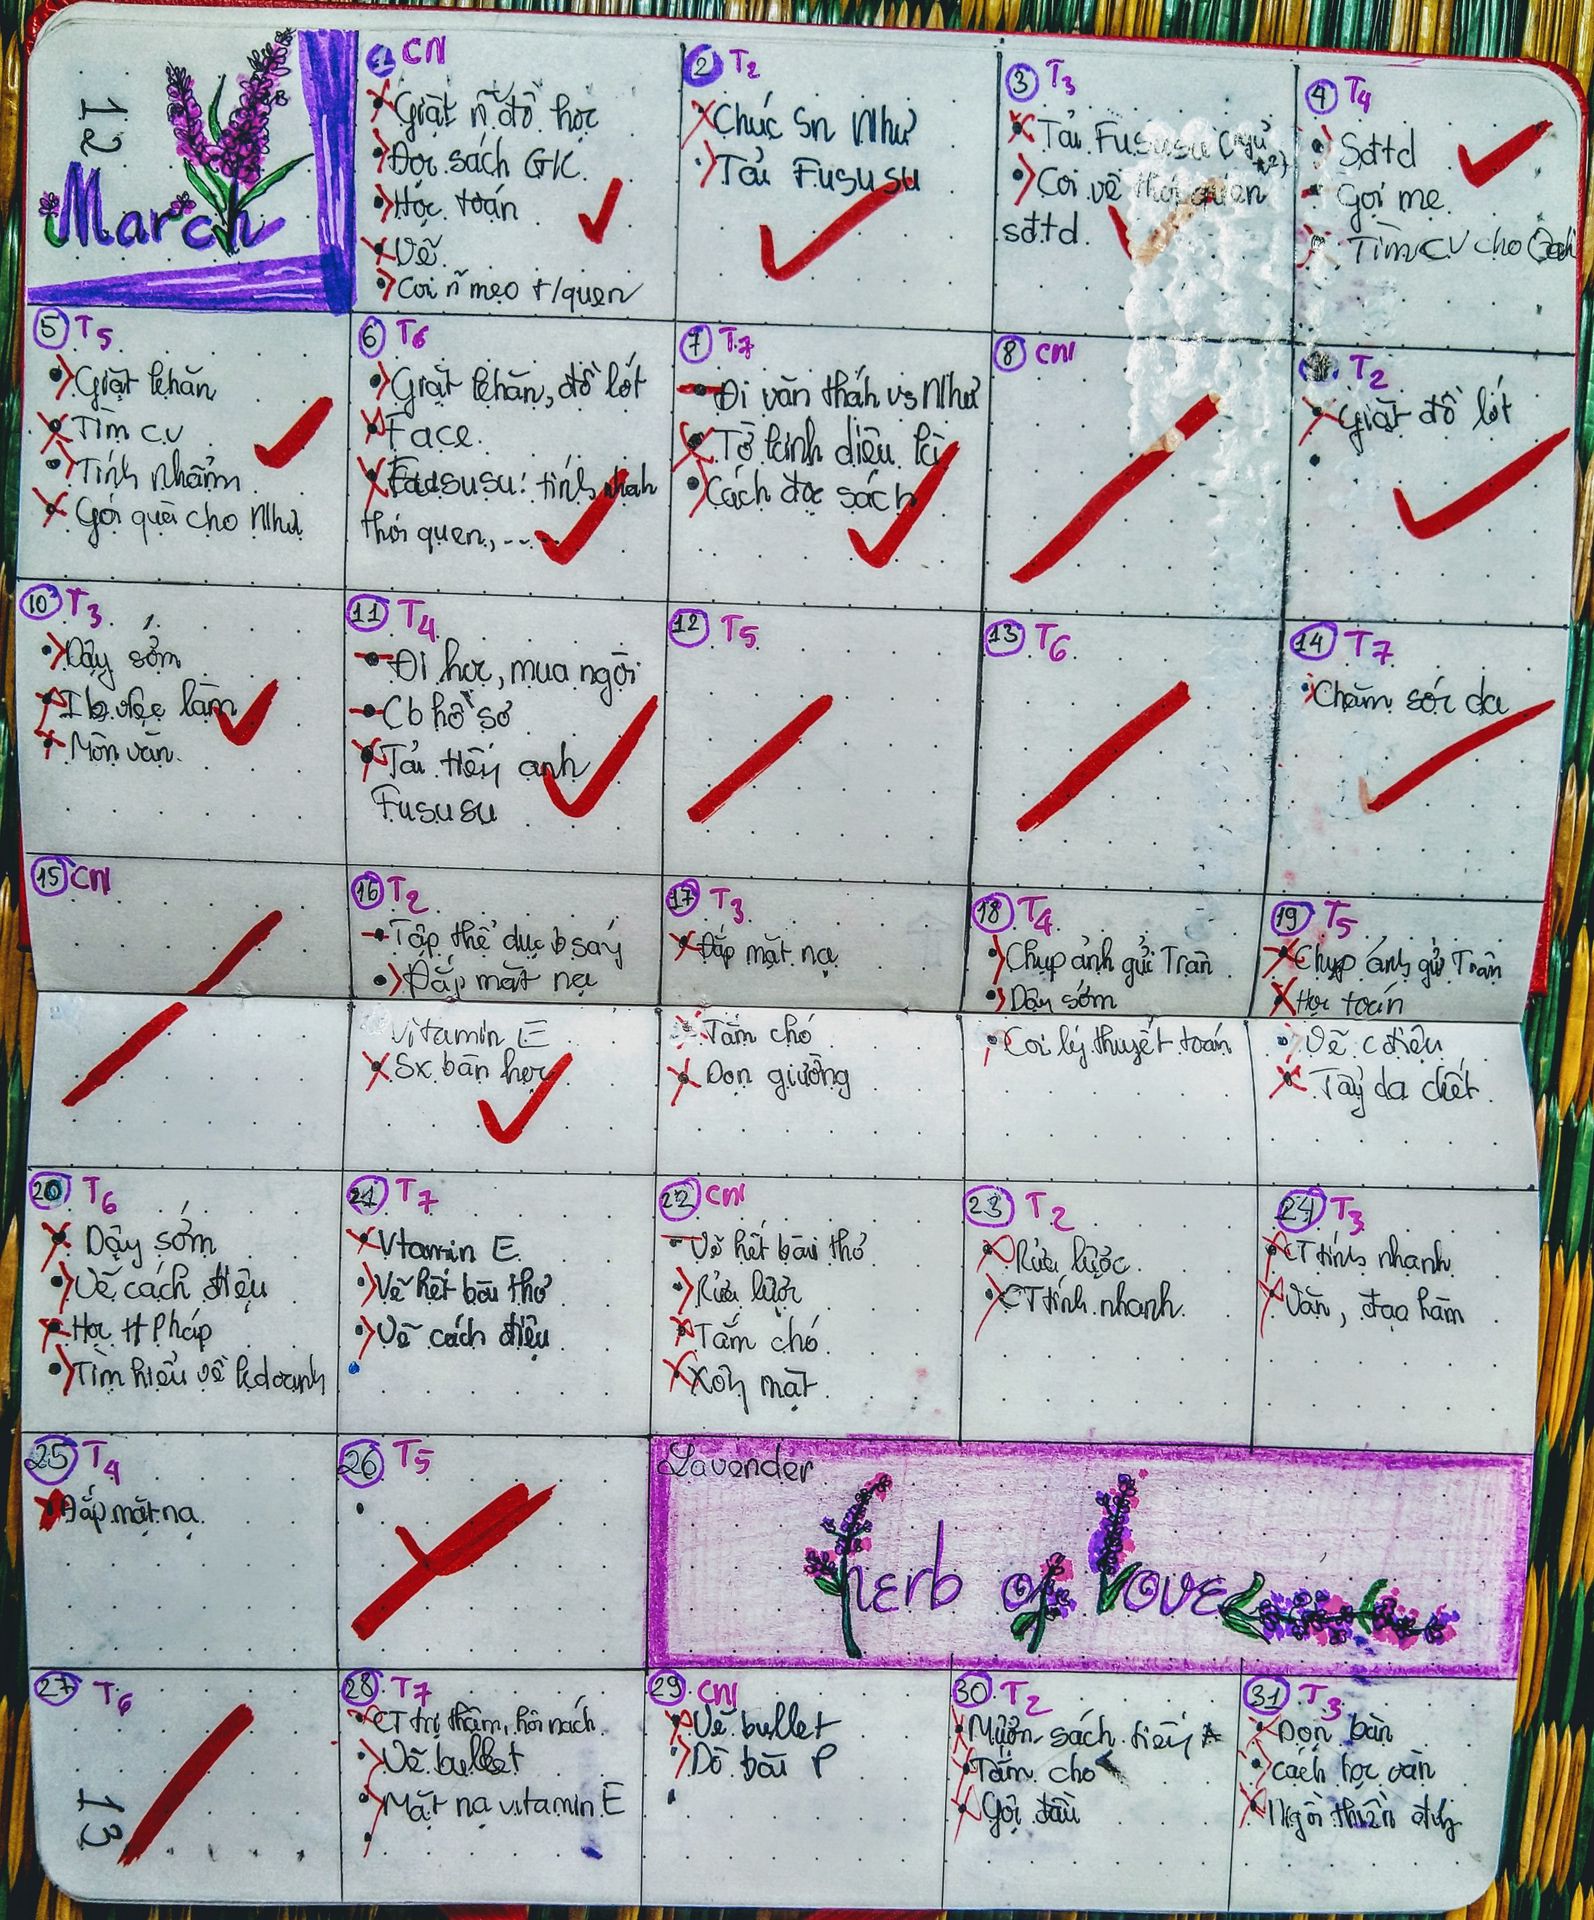 12
March
1 CN
Giặt ñ đồ học
Đọc sách GK
Học toán
Vẽ
Coi ñ mẹo t/quen
2 T2
Chúc Sn Như
Tải Fususu
3 T3
Tải Fususu
Coi về thói quen
sđtd
4 T4
Sđtd
Gọi mẹ
Tìm CV cho
5 T5
Giặt khăn
Tìm CV
Tính nhẩm
Gói quà cho Như
6 T6
Giặt khăn, đồ lót
Face
Fususu: tính nhanh
thói quen, ...
7 T7
Đi văn thánh vs Như
Tờ kinh diệu kì
Cách đọc sách
8 CN
T2
Giặt đồ lót
10 T3
Dậy sớm
Ib việc làm
Môn văn
11 T4
Đi học, mua ngòi
Cb hồ sơ
Tải tiếng anh
Fususu
12 T5
13 T6
14 T7
Chăm sóc da
15 CN
16 T2
Tập thể dục b sáng
Đắp mặt nạ
vitamin E
Sx bàn học
17 T3
Đắp mặt nạ
Tắm chó
Dọn giường
18 T4
Chụp ảnh gửi Trân
Dậy sớm
Coi lý thuyết toán
19 T5
Chụp ảnh gửi Trân
Học toán
Vẽ c điệu
Tẩy da chết
20 T6
Dậy sớm
Vẽ cách điệu
Học tt Pháp
Tìm hiểu về kdoanh
21 T7
Vtamin E
Vẽ hết bài thơ
Vẽ cách điệu
22 CN
Vẽ hết bài thơ
Rửa lược
Tắm chó
Xông mặt
23 T2
Rửa lược
CT tính nhanh
24 T3
CT tính nhanh
Văn, đạo hàm
25 T4
Đắp mặt nạ
26 T5
Lavender
herb of love
27 T6
13
28 T7
CT trị thâm, hôi nách
Vẽ bullet
Mặt nạ vitamin E
29 CN
Vẽ bullet
Dò bài P
30 T2
Mượn sách tiếng A
Tắm chó
Gội đầu
31 T3
Dọn bàn
Cách học văn
Ngồi thiền